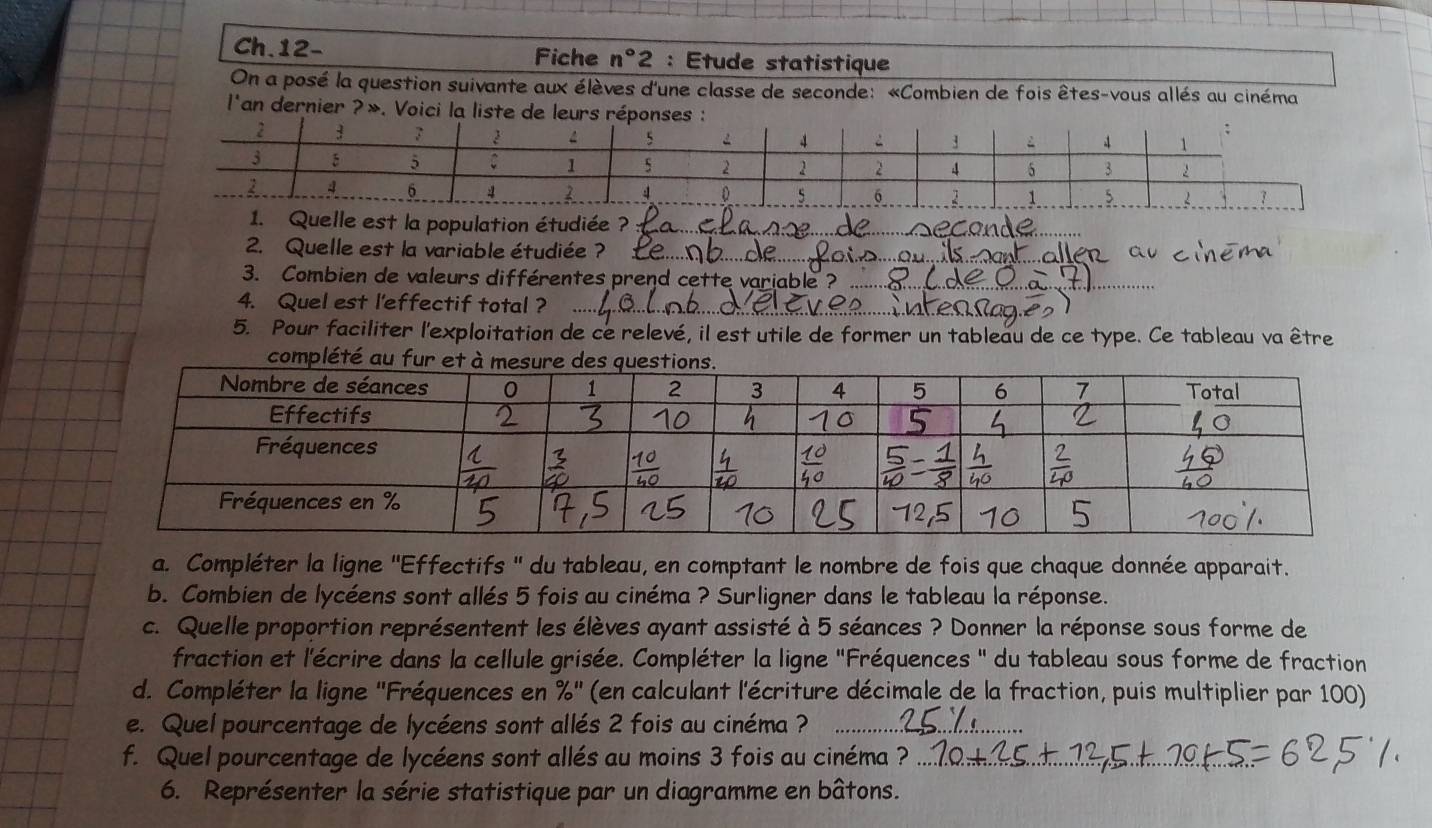 Ch.12-
Fiche n°2 : Etude statistique
On a posé la question suivante aux élèves d'une classe de seconde: «Combien de fois êtes-vous allés au cinéma
l'an dernier ?». Voici la liste de leurs réponses :
2 3 2 5 4 3 4 1
3 5 5 1 5 2 2 2 4 3 2
2 4 6 4 2 4 0 5 6 1 5 2
1. Quelle est la population étudiée ? la classe de seconde
2. Quelle est la variable étudiée ? le nb de fois ou ils sont aller au cinéma
3. Combien de valeurs différentes prend cette variable ? 8 (de 0 à 7)
4. Quel est l'effectif total ? 40 (nb d'élèves interrogés)
5. Pour faciliter l'exploitation de ce relevé, il est utile de former un tableau de ce type. Ce tableau va être
complété au fur et à mesure des questions.
Nombre de séances 0 1 2 3 4 5 6 7 Total
Effectifs 2 3 10 4 10 5 4 2 40
Fréquences 2/40 3/40 10/40 4/40 10/40 5/40 = 1/8 4/40 2/40 40/40
Fréquences en % 5 7,5 25 10 25 12,5 10 5 100%
a. Compléter la ligne "Effectifs " du tableau, en comptant le nombre de fois que chaque donnée apparait.
b. Combien de lycéens sont allés 5 fois au cinéma ? Surligner dans le tableau la réponse.
c. Quelle proportion représentent les élèves ayant assisté à 5 séances ? Donner la réponse sous forme de
fraction et l'écrire dans la cellule grisée. Compléter la ligne "Fréquences " du tableau sous forme de fraction
d. Compléter la ligne "Fréquences en %" (en calculant l'écriture décimale de la fraction, puis multiplier par 100)
e. Quel pourcentage de lycéens sont allés 2 fois au cinéma ? 25%
f. Quel pourcentage de lycéens sont allés au moins 3 fois au cinéma ? 10+25+12,5+10+5=62,5%
6. Représenter la série statistique par un diagramme en bâtons.